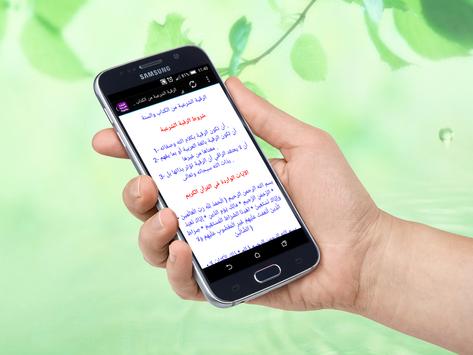 SAMSUNG
11:40
الرقية الشرعية من الكتاب ..
الرقية الشرعية من الكتاب والسنة
شروط الرقية الشرعية
1- أن تكون الرقية بكلام الله وصفاته .
2- أن تكون الرقية باللغة العربية أو بما يفهم معناها من غيرها .
3- أن لا يعتقد الراقي أن الرقية تؤثر بذاتها بل بذات الله سبحانه وتعالى .
الآيات الواردة في القرآن الكريم
بسم الله الرحمن الرحيم { الحمد لله رب العالمين
* الرحمن الرحيم * مالك يوم الدين * إياك نعبد
وإياك نستعين * اهدنا الصراط المستقيم * صراط
الذين أنعمت عليهم غير المغضوب عليهم ولا
الضالين }
بسم الله الرحمن الرحيم {